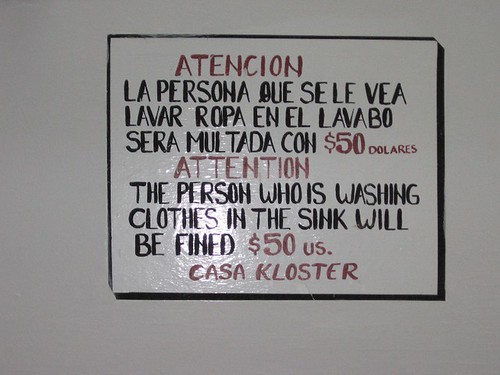 ATENCION
LA PERSONA QUE SE LE VEA
LAVAR ROPA EN EL LAVABO
SERA MULTADA CON $50 DOLARES
ATTENTION
THE PERSON WHO IS WASHING
CLOTHES IN THE SINK WILL
BE FINED $50 US.
CASA KLOSTER